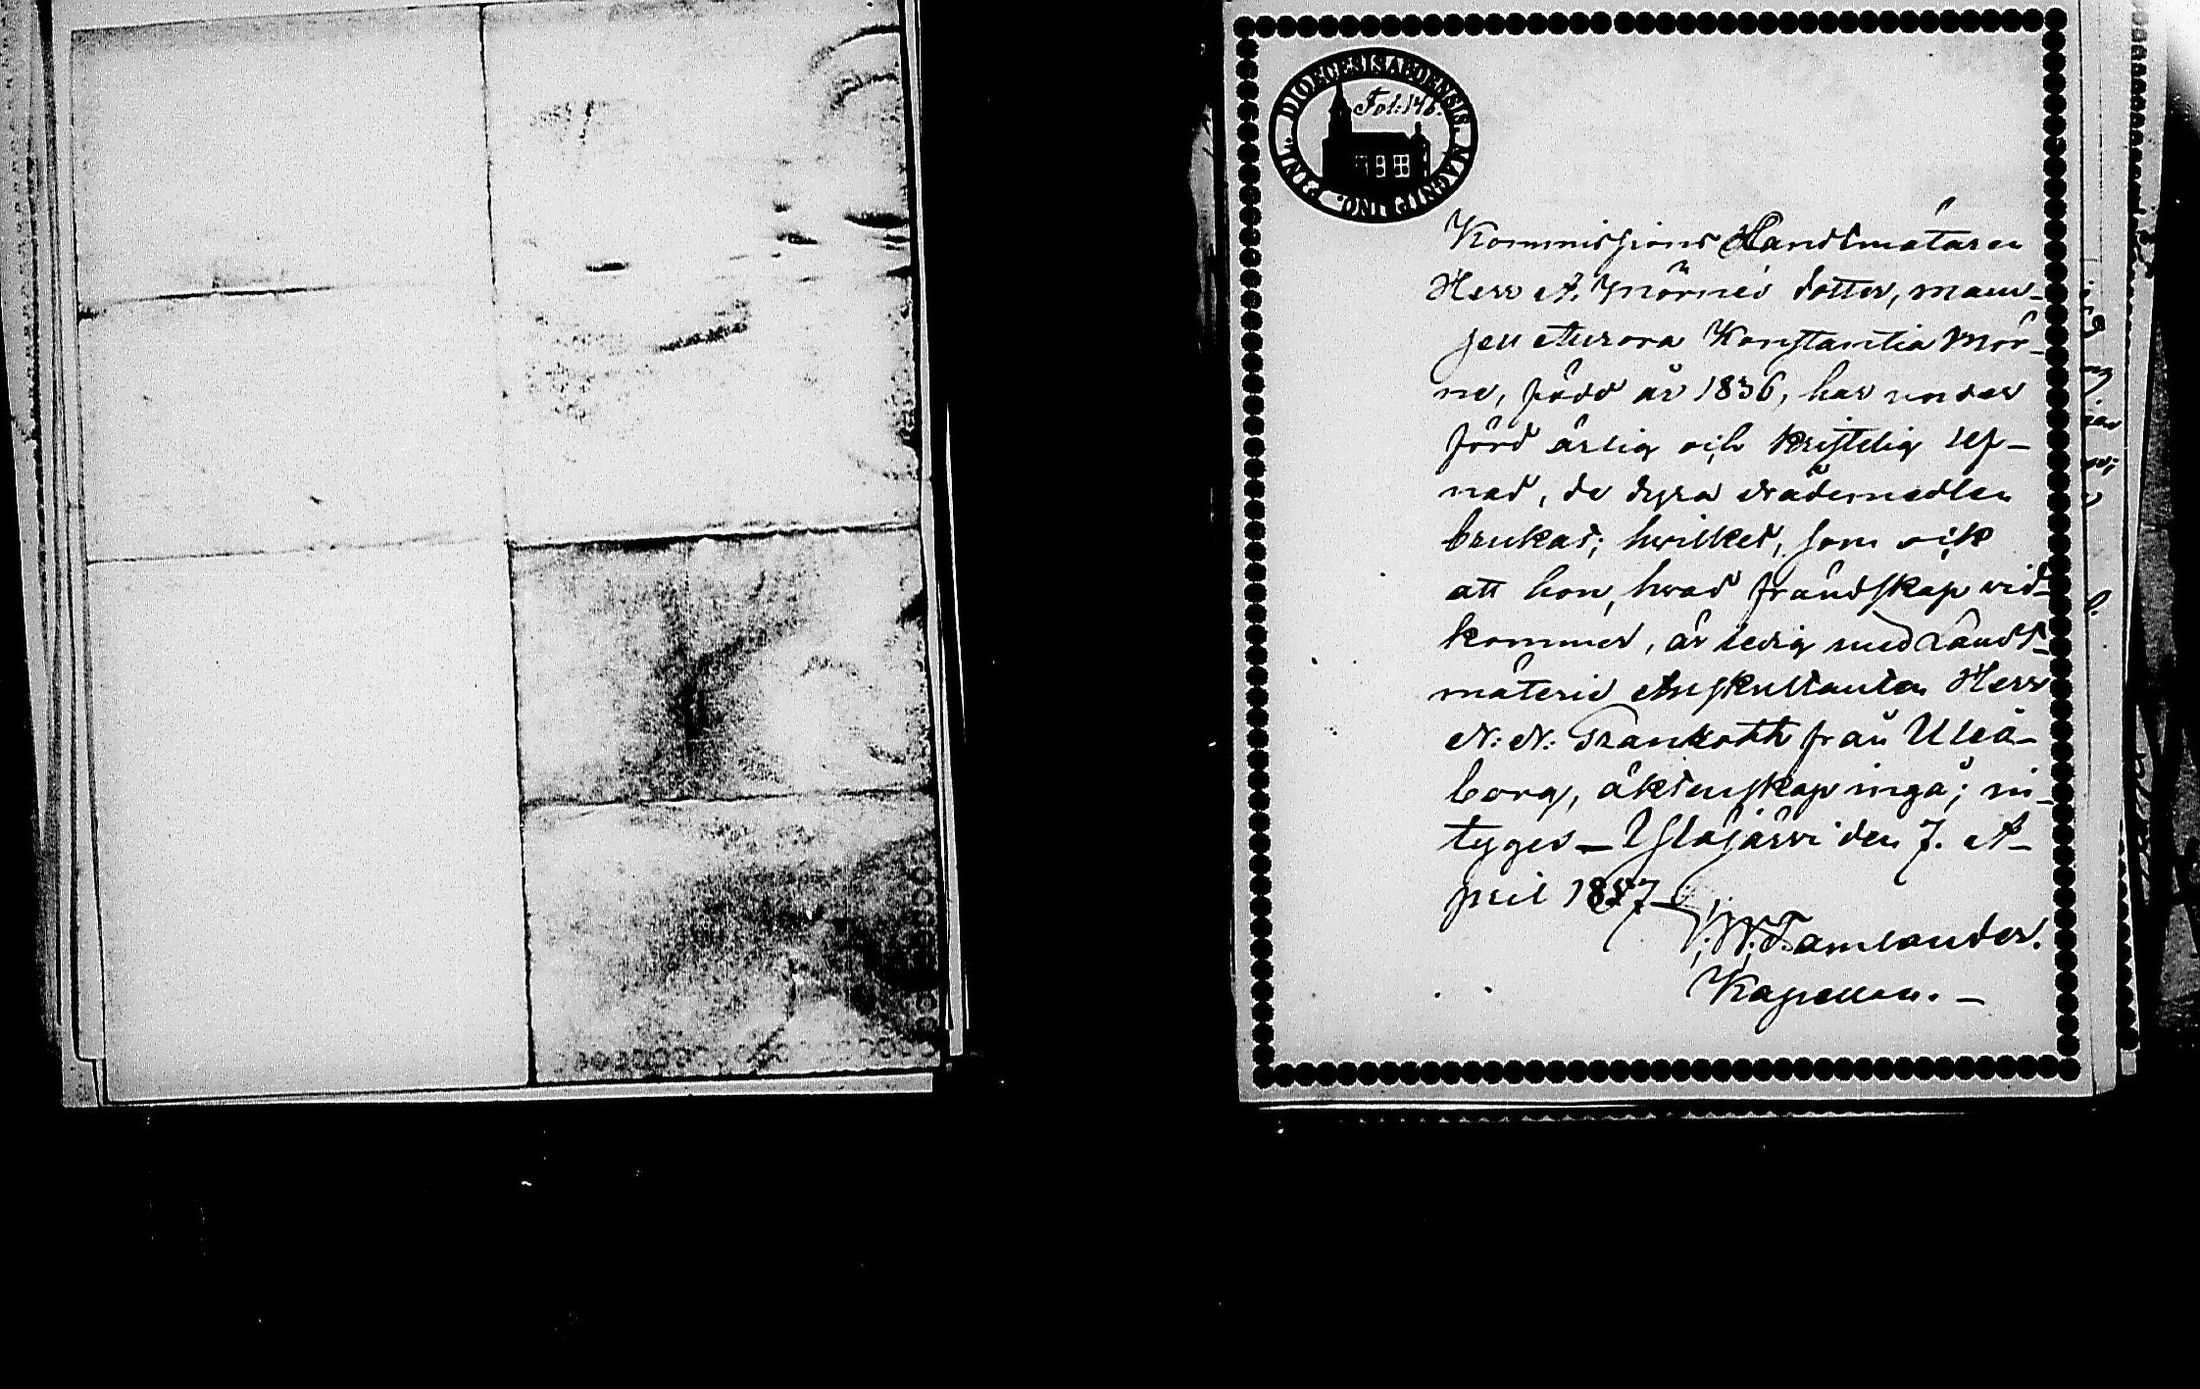 DIOECESIS ABOENSIS. MAGNI PRINC. FINL.
Fol: 146.
Kommissions Landtmätaren
Herr A. Mörnes dotter, mam-
sell Aurora Konstantia Mör-
ne, född år 1836, har under
förd ärlig och kristelig lef-
nad, de dyra nådemedlen
brukat; hvilket, som ock
att hon, hvad frändskap vid-
kommer, är ledig med Landt-
mäterie Auskultanten Herr
N: N: Frankoth från Uleå-
borg, äktenskap ingå; in-
tyges — Ylöjärvi den 7. A-
pril 1857
W: Tamlander.
Kapellan. —